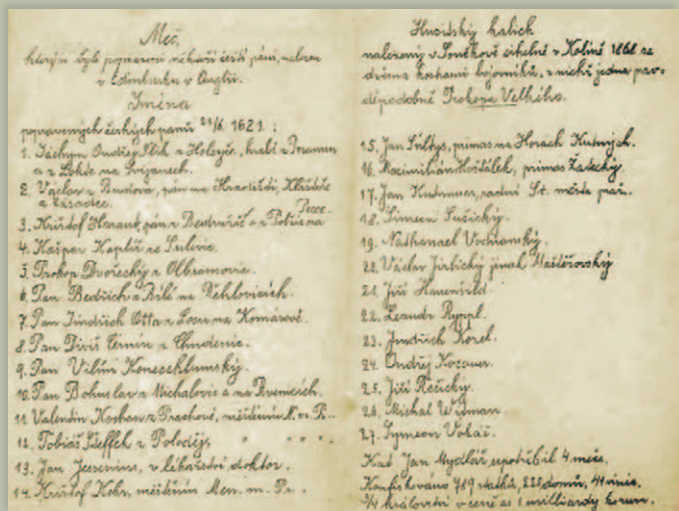 Meč,
kterým byli popraveni někteří čeští páni, nalezen
v Edinburku v Anglii.
Jména
popravených českých panů 21/6. 1621.:
1. Jáchym Ondřej Šlik z Holejče, hrabě z Possaunu
a z Lokte na Svijanech.
2. Václav z Budova, pán na Hradišti, Klášteře
a Zásadce.
3. Krištof Harant, pán z Bedružic a z Polžic na
Pecce.
4. Kašpar Kaplíř ze Sulevic.
5. Prokop Dvořecký z Olbramovic.
6. Pan Bedřich z Bílé na Řehlovicích.
7. Pan Jindřich Otta z Losu na Komárově.
8. Pan Diviš Černín z Chudenic.
9. Pan Vilím Konecchlumský.
10. Pan Bohuslav z Michalovic a na Rvenicích.
11. Valentin Kochan z Prachové, měštěnín N. m. P..
12. Tobiáš Šteffek z Koloděje " " " ".
13. Jan Jessenius, v lékařství doktor.
14. Krištof Kobr, měštěnín Men. m. Pr..
Husitský kalich
nalezený v cihelně v Kolíně 1868 se
dvěma kostrami bojovníků, z nichž jedna prav-
děpodobně Prokopa Velkého.
15. Jan Šultys, primas na Horách Kutných.
16. Maximilián Hošťálek, primas Žatecký
17. Jan Kutnauer, radní St. města praž.
18. Simeon Sušický.
19. Nathanael Vodňanský.
20. Václav Jizbický jinak Maštěřovský
21. Jiří Hauenšild.
22. Leandr Ryppl.
23. Jindřich Kozel.
24. Ondřej Kocaur.
25. Jiří Řečický.
26. Michal Witman.
27. Symeon Vokáč.
Kat Jan Mydlář upotřebil 4 meče.
Konfiskováno 769 statků, 225 domů, 41 vinic.
3/4 království v ceně as 1 milliardy korun.